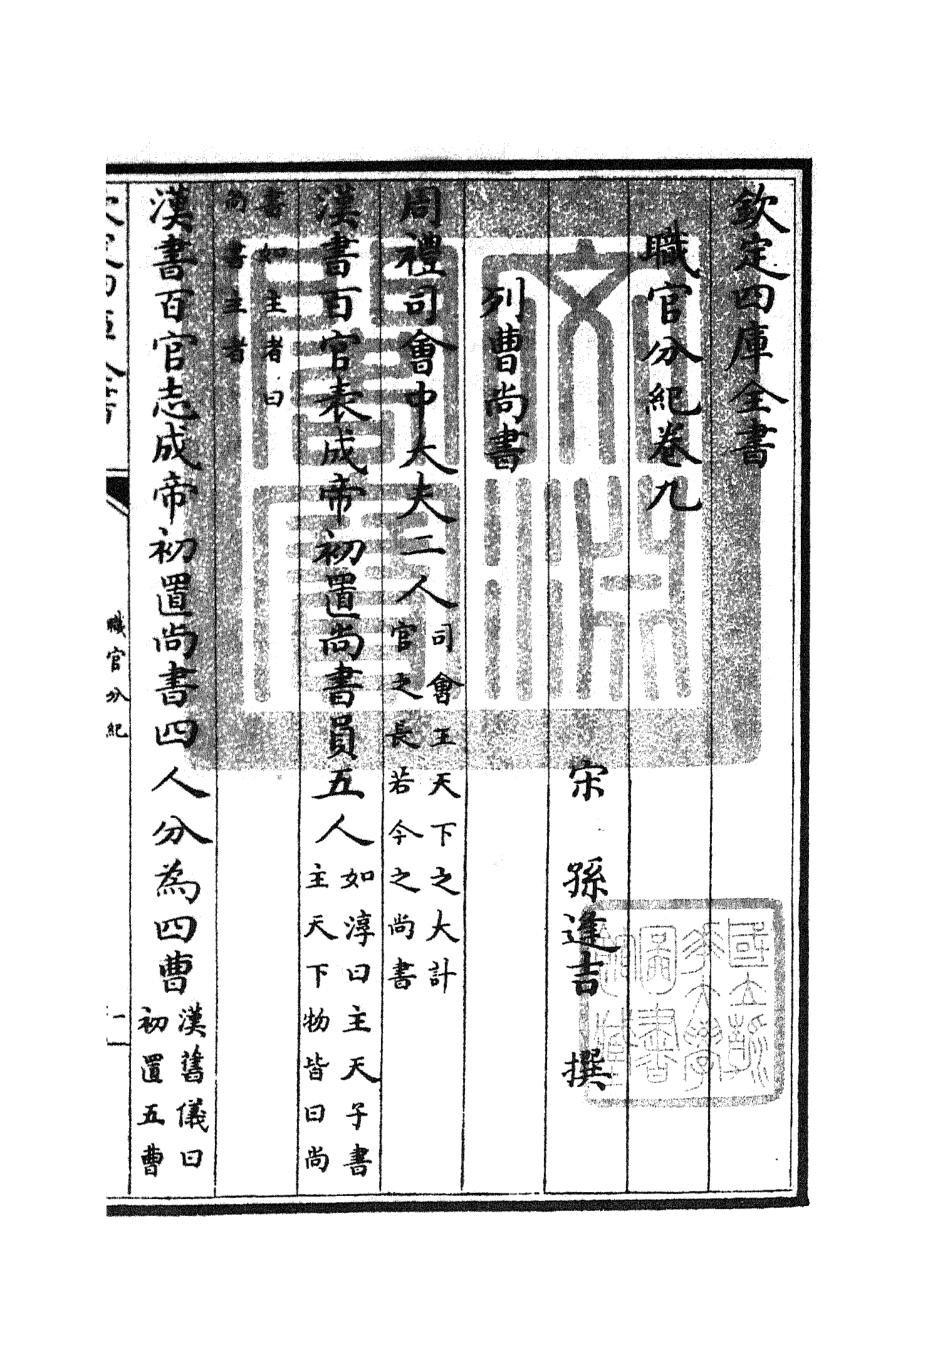 欽定四庫全書
職官分紀卷九
宋 孫逢吉 撰
列曹尚書
周禮司會中大夫二人
司會王天下之大計
官之長若今之尚書
漢書百官表成帝初置尚書員五人
如淳曰主天子書
主天下物皆曰尚
書如主者曰
尚書主者
漢書百官志成帝初置尚書四人分為四曹
漢舊儀曰
初置五曹
職官分紀
文淵閣寶